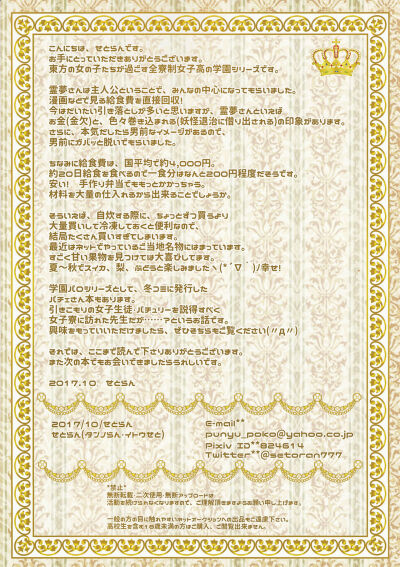 こんにちは、せとらんです。
お手にとっていただきありがとうございます。
東方の女の子たちが過ごす全寮制女子高の学園シリーズです。
霊夢さんは主人公ということで、みんなの中心になってもらいました。
漫画などで見る給食費を直接回収!
今はだいたい引き落としが多いと思いますが、霊夢さんといえば
お金(金欠)と、色々巻き込まれる(妖怪退治に借り出される)の印象があります。
さらに、本気だしたら男前なイメージがあるので、
男前にガバッと脱いでもらいました。
ちなみに給食費は、国平均で約4,000円。
約20日給食を食べるので一食分はなんと200円程度だそうです。
安い! 手作り弁当でももっとかかっちゃう。
材料を大量の仕入れるから出来ることでしょうか。
そういえば、自炊する際に、ちょっとずつ買うより
大量買いして冷凍しておくと便利なので、
結局たくさん買いすぎてしまいます。
最近はネットでやっているご当地名物にはまっています。
すごく甘い果物を見つけては大喜びしてます。
夏~秋でスイカ、梨、ぶどうと楽しみましたヽ(*´∇`)ノ幸せ!
学園パロシリーズとして、冬コミに発行した
パチェさん本もあります。
引きこもりの女子生徒・パチュリーを説得すべく
女子寮に訪れた先生だが……?というお話です。
興味をもっていいただけましたら、ぜひそちらもご覧ください(〃д〃)
それでは、ここまで読んで下さりありがとうございます。
また次の本でもお会いできましたらうれしいです。
2017.10 せとらん
2017/10/せとらん
せとらん(タンノらん・イトウせと)
E-mail**
punyu_poko@yahoo.co.jp
Pixiv ID**824614
Twitter**@setoran777
*禁止*
無断転載・二次使用・無断アップロードは
活動を続けられなくなりますので、ご理解頂きますようお願い申し上げます。
一般の方の目に触れやすいネットオークションへの出品もご遠慮下さい。
高校生を含む18歳未満の方はご購入、ご閲覧出来ません。